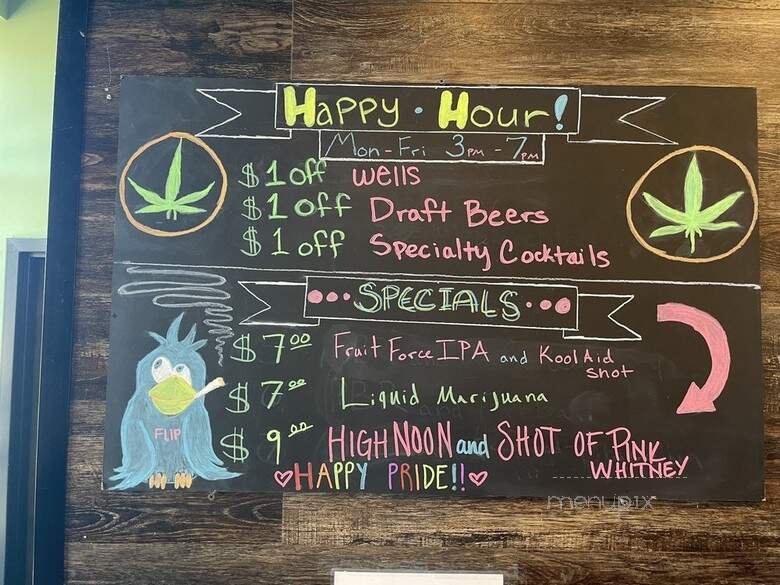 Happy · Hour!
Mon-Fri 3PM-7PM
$1 off wells
$1 off Draft Beers
$1 off Specialty Cocktails
SPECIALS
$7.00 Fruit Force IPA and Kool Aid shot
$7.00 Liquid Marijuana
$9.00 HIGH NOON and SHOT OF PINK WHITNEY
FLIP
HAPPY PRIDE!!
menupix